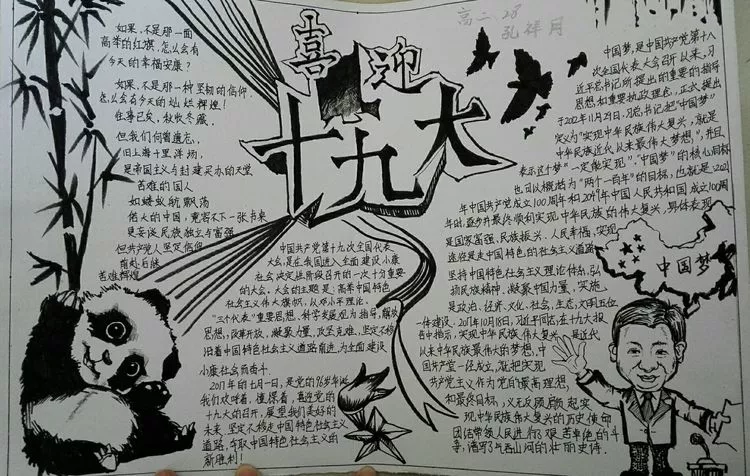 高二.28
孔祥月
喜迎
十九大
如果,不是那一面
高举的红旗,怎么会有
今天的幸福安康?
如果,不是那一种坚韧的信仰,
怎么会有今天的灿烂辉煌!
往事已矣,秋收冬藏.
但我们何曾遗忘,
旧上海十里洋场,
是帝国主义与封建买办的天堂
苦难的国人
如蝼蚁般飘荡
偌大的中国,竟容不下一张书桌
更妄谈民族独立与富强
但共产党人坚定信仰
苦难辉煌
中国共产党第十九次全国代表
大会,是在我国进入全面建设小康
社会决定性阶段召开的一次十分重要
的大会.大会的主题是:高举中国特色
社会主义伟大旗帜,以邓小平理论,
"三个代表"重要思想,科学发展观为指导,解放
思想,改革开放,凝聚力量,攻坚克难,坚定不移
沿着中国特色社会主义道路前进,为全面建设
小康社会而奋斗.
2011年的七月一日,是党的96岁年诞
我们欢呼着,憧憬着,喜迎党的
十九大的召开,展望我们美好的
未来.坚定不移走中国特色社会主义
道路,夺取中国特色社会主义的
新胜利!
中国梦,是中国共产党第十八
次全国代表大会召开以来,习
近平总书记所提出的重要的指导
思想和重要执政理念,正式提出
于2012年11月29日.习总书记把"中国梦"
定义为"实现中华民族伟大复兴,就是
中华民族近代以来最伟大梦想,"并且
表示这个梦"一定能实现"."中国梦"的核心目标
也可以概括为"两个一百年"的目标,也就是:2021
年中国共产党成立100周年和2049年中国人民共和国成立100周
年时,逐步并最终顺利实现中华民族的伟大复兴,具体表现
是国家富强、民族振兴、人民幸福,实现
途径是走中国特色的社会主义道路
坚持中国特色社会主义理论体系,弘
扬民族精神,凝聚中国力量,实施
是政治、经济、文化、社会、生态,文明五位
一体建设.2017年10月18日,习近平同志在十九大报
告中指示,实现中华民族伟大复兴,是近代
以来中华民族最伟大的梦想,中
国共产党一经成立,就把实现
共产党主义作为党的最高理想,
和最终目标,义无反顾肩起实
现中华民族伟大复兴的历史使命
团结带领人民进行了艰苦卓绝的斗
争,谱写了气吞山河的壮丽史诗.
中国梦